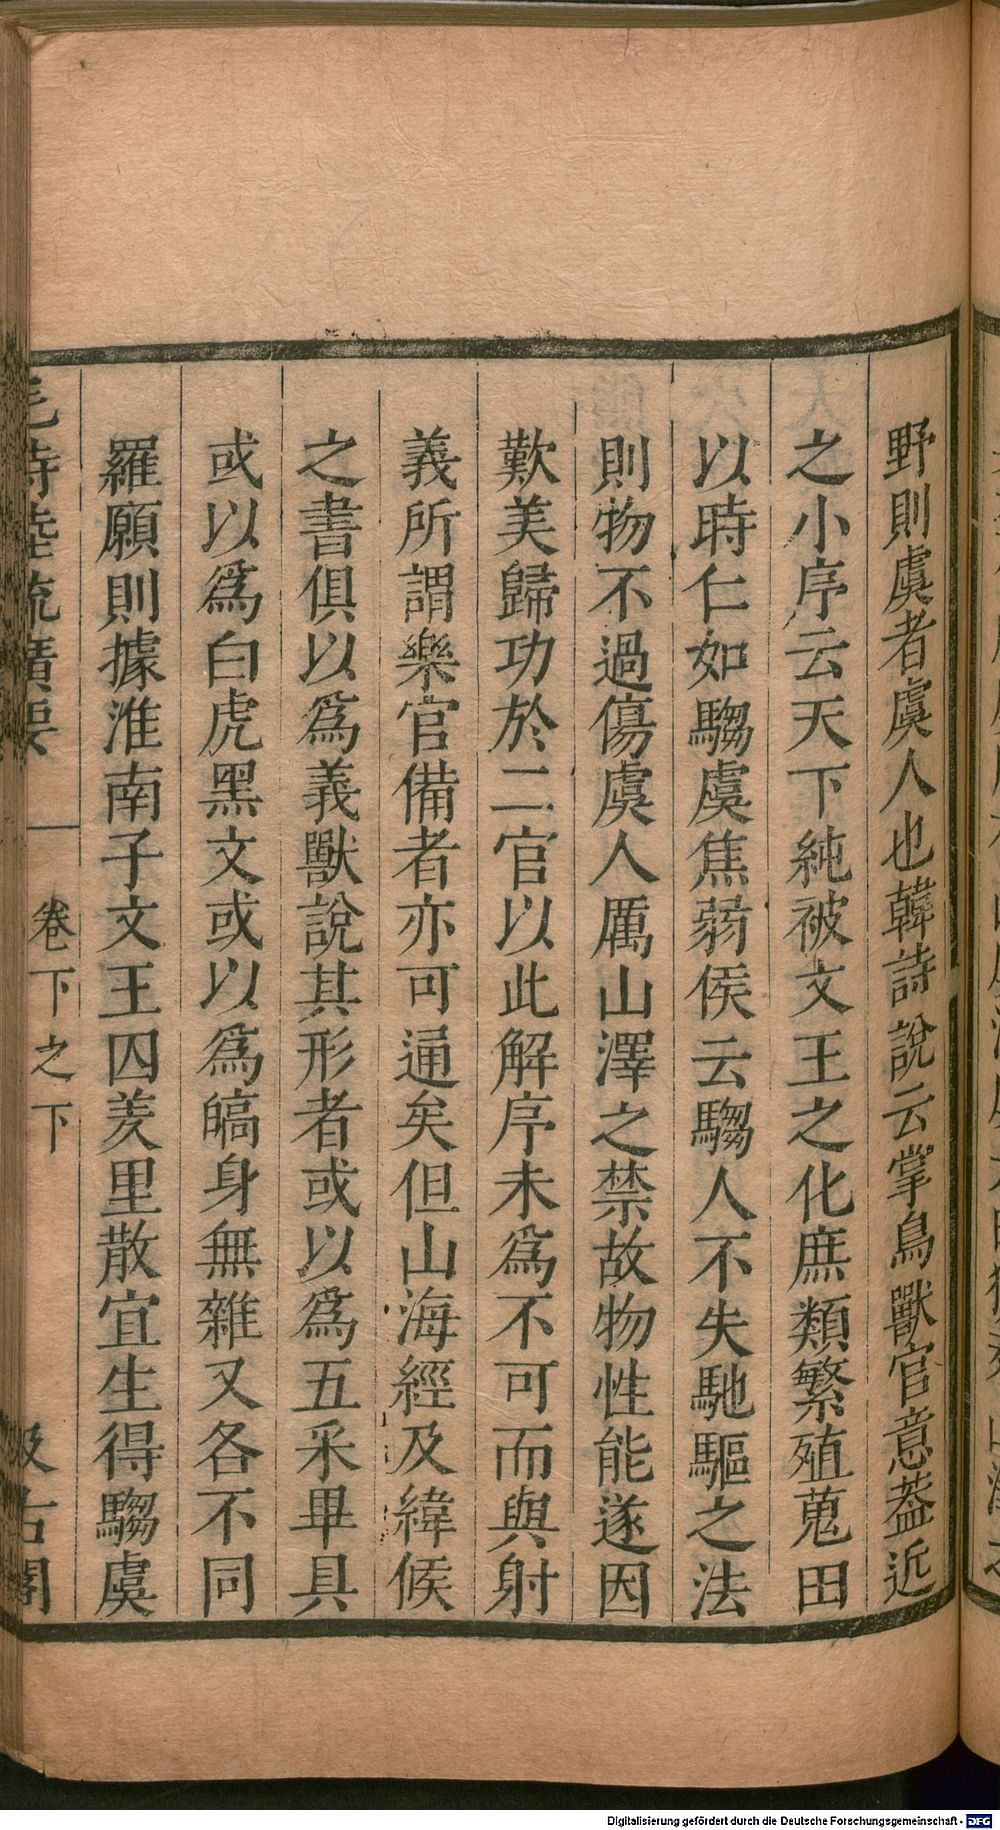 野則虞者虞人也韓詩說云掌鳥獸官意葢近
之小序云天下純被文王之化庶類繁殖蒐田
以時仁如騶虞焦弱侯云騶人不失馳驅之法
則物不過傷虞人厲山澤之禁故物性能遂因
歎美歸功於二官以此解序未爲不可而與射
義所謂樂官備者亦可通矣但山海經及緯候
之書俱以爲義獸說其形者或以爲五采畢具
或以爲白虎黑文或以爲皜身無雜又各不同
羅願則據淮南子文王囚羑里散宜生得騶虞
毛詩陸疏廣要 卷下之下 汲古閣
Digitalisierung gefördert durch die Deutsche Forschungsgemeinschaft - DFG